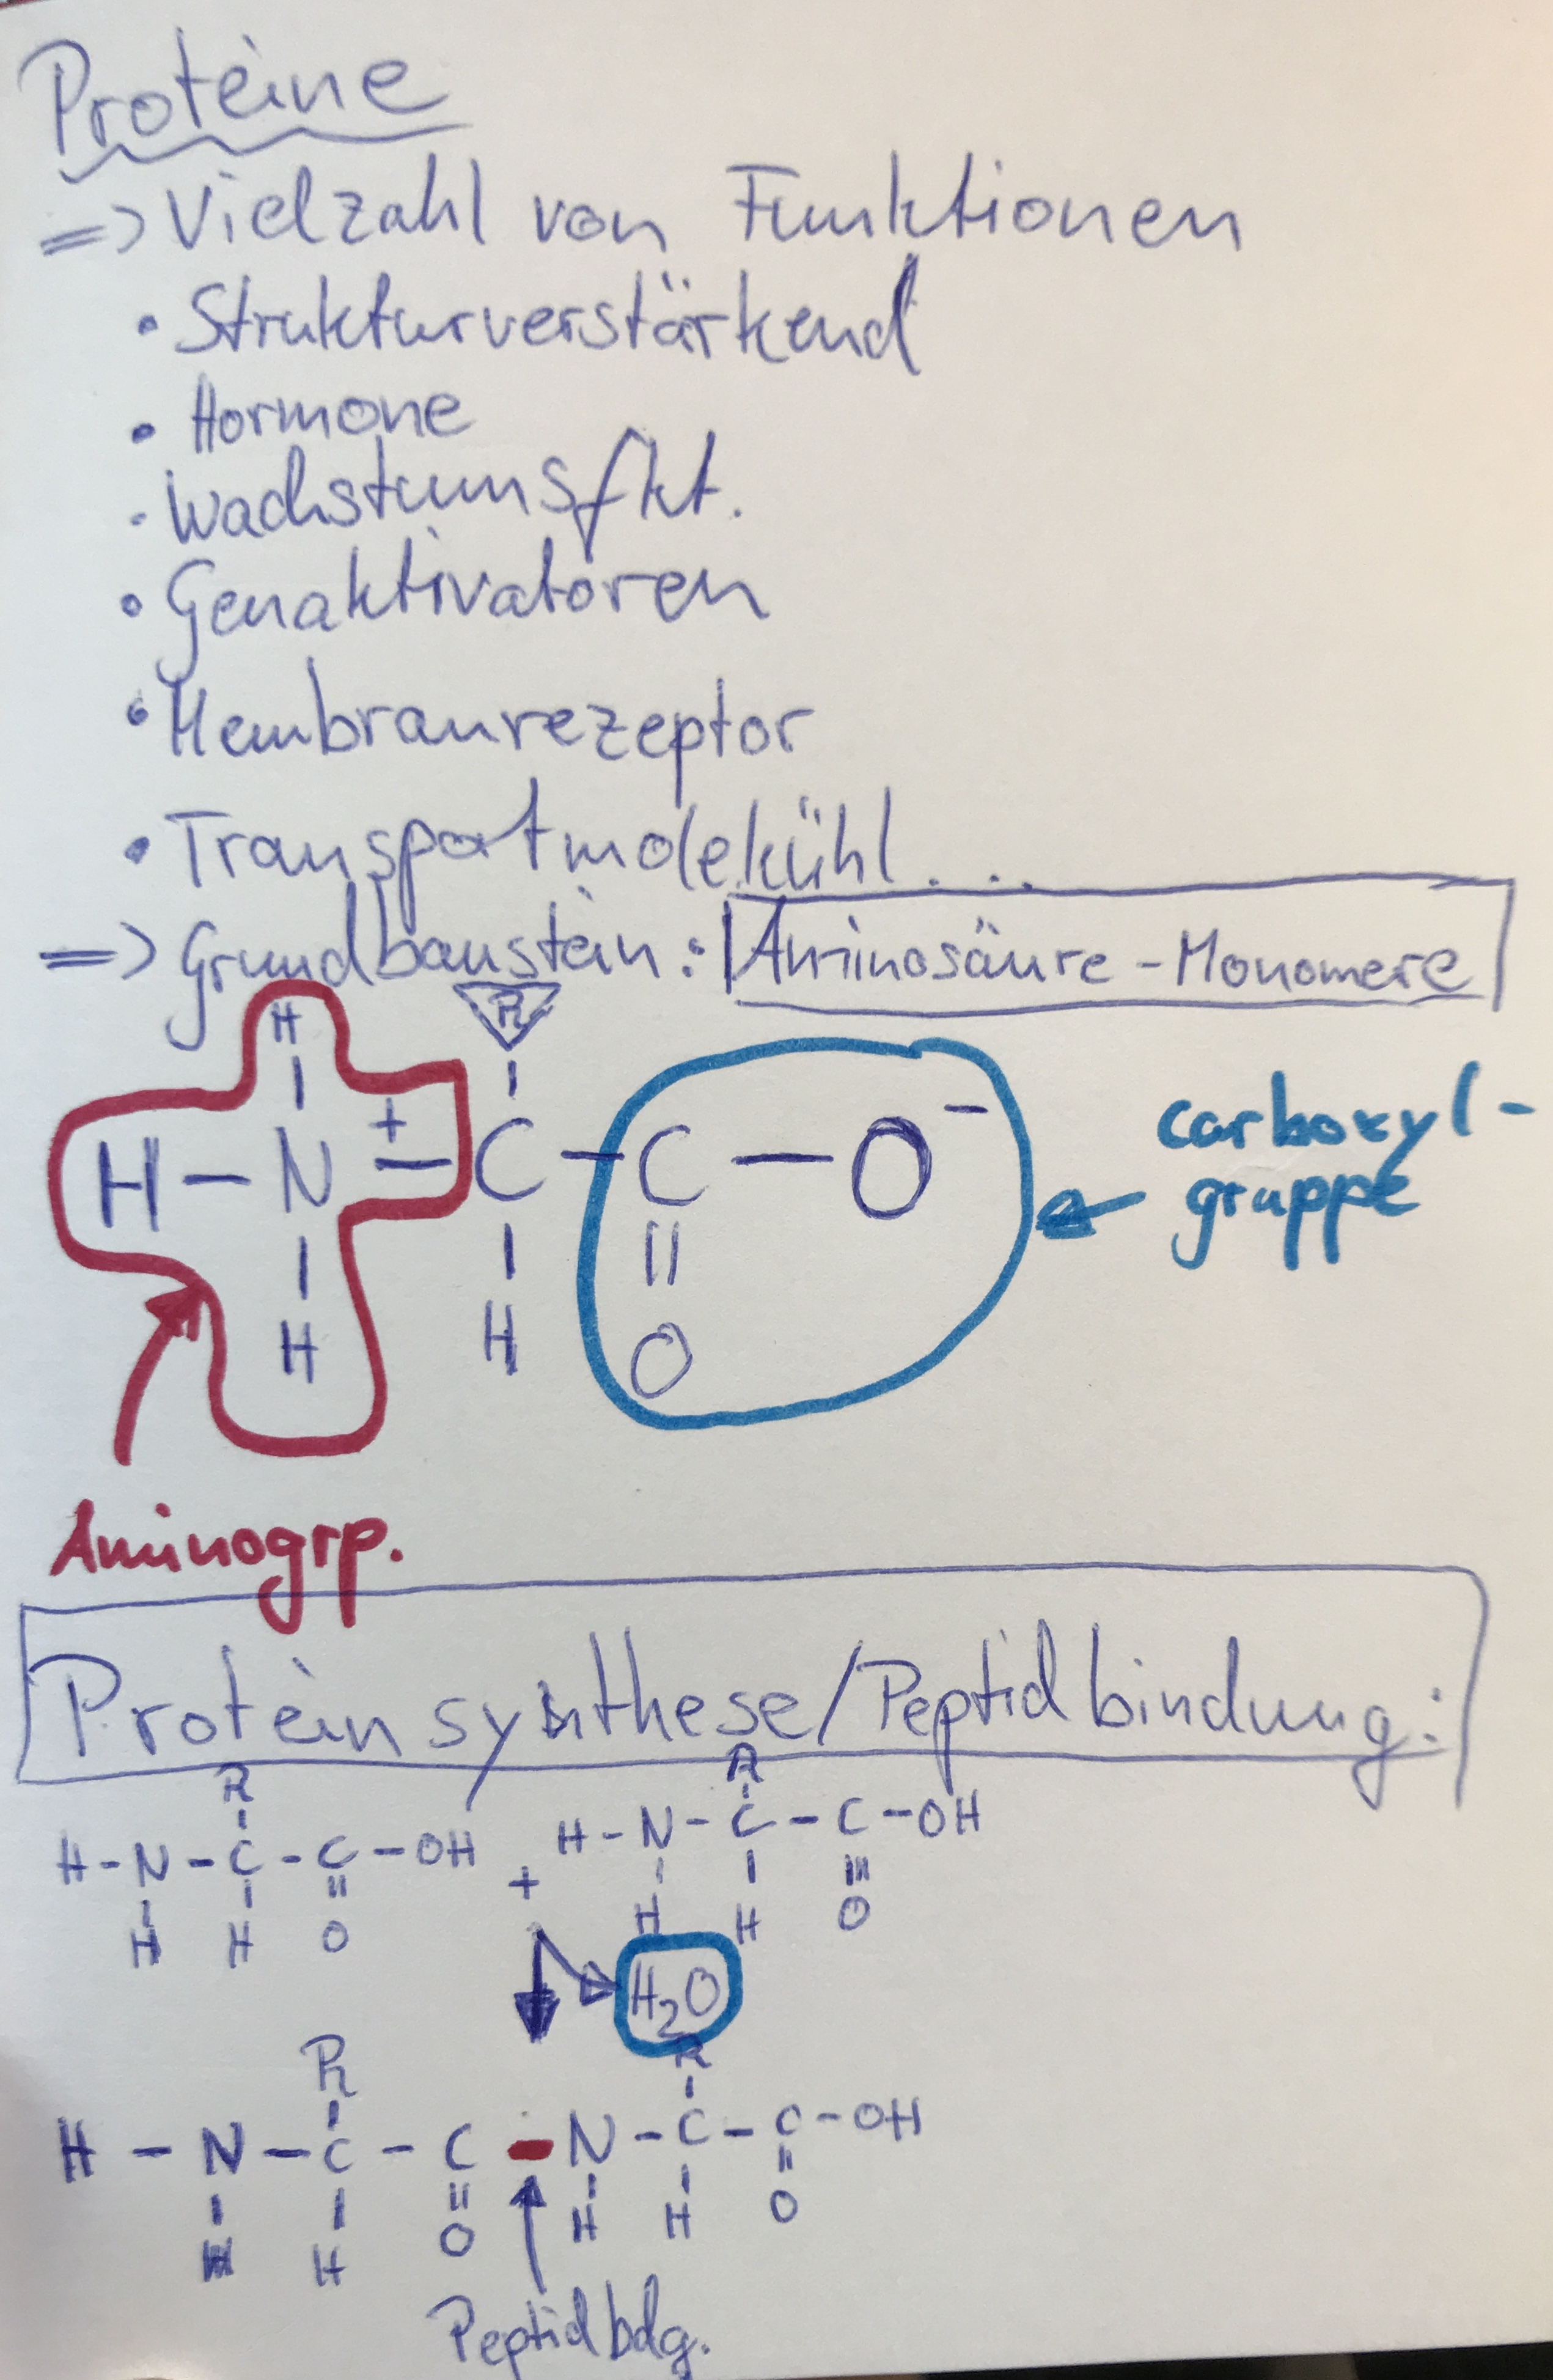 Proteine
=> Vielzahl von Funktionen
• Strukturverstärkend
• Hormone
• Wachstumsfkt.
• Genaktivatoren
• Membranrezeptor
• Transportmolekühl...
=> Grundbaustein: Aminosäure-Monomere
H R
H - N ± C - C - O⁻
H H O
carboxyl-
gruppe
Aminogrp.
Proteinsynthese/Peptidbindung:
R R
H-N-C-C-OH + H-N-C-C-OH
H H O H H O
H₂O
R R
H-N-C-C-N-C-C-OH
H H O H H O
Peptidbdg.